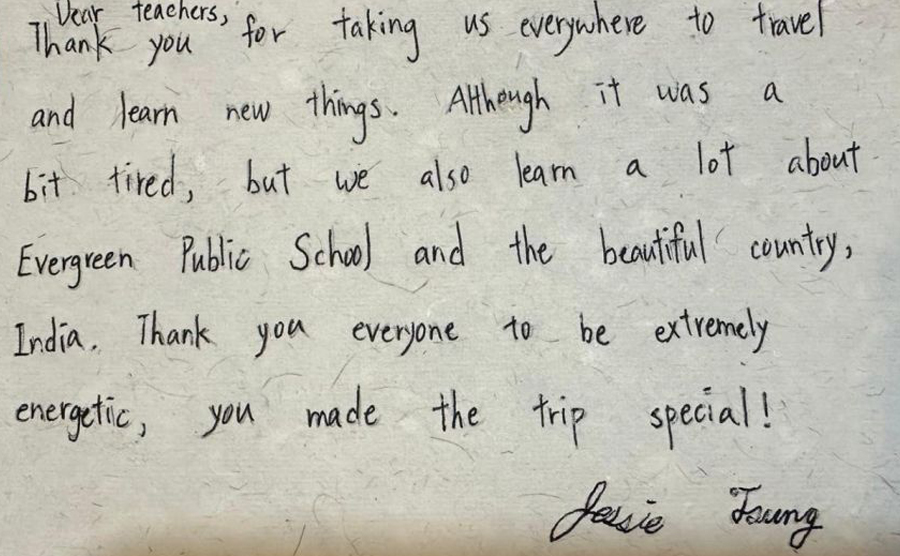 Dear teachers,
Thank you for taking us everywhere to travel
and learn new things. Although it was a
bit tired, but we also learn a lot about
Evergreen Public School and the beautiful country,
India. Thank you everyone to be extremely
energetic, you made the trip special!
Jessie Tsung